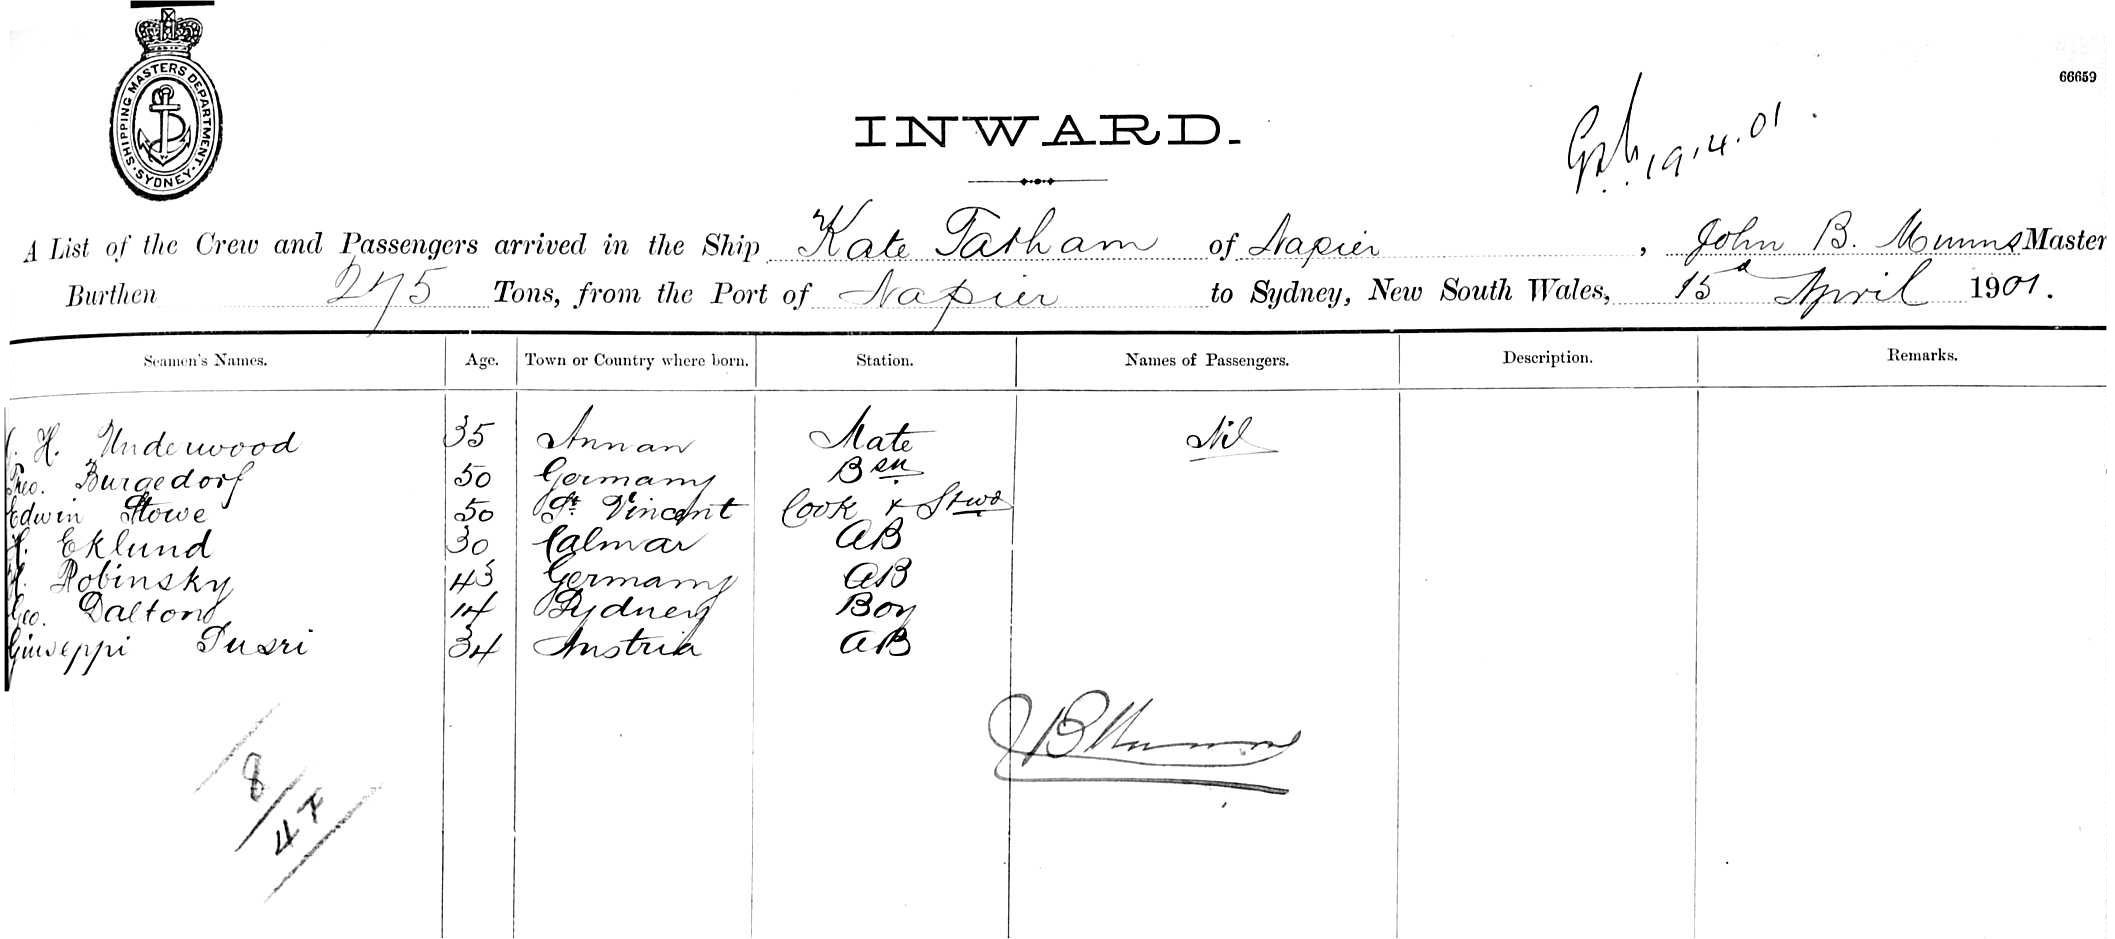 SHIPPING MASTERS DEPARTMENT · SYDNEY ·
66659
INWARD.
19.4.01.
A List of the Crew and Passengers arrived in the Ship Kate Tatham of Napier, John B. Munns Master
Burthen 275 Tons, from the Port of Napier to Sydney, New South Wales, 15th April 1901.
Seamen's Names. Age. Town or Country where born. Station. Names of Passengers. Description. Remarks.
H. Underwood 35 Annan Mate Nil
Theo. Burgedorf 50 Germany Bsn
Edwin Stowe 50 St. Vincent Cook + Stwd
Eklund 30 Calmar AB
Robinsky 43 Germany AB
Geo. Dalton 14 Sydney Boy
Giuseppi 34 Austria AB
JB Munns
8/47